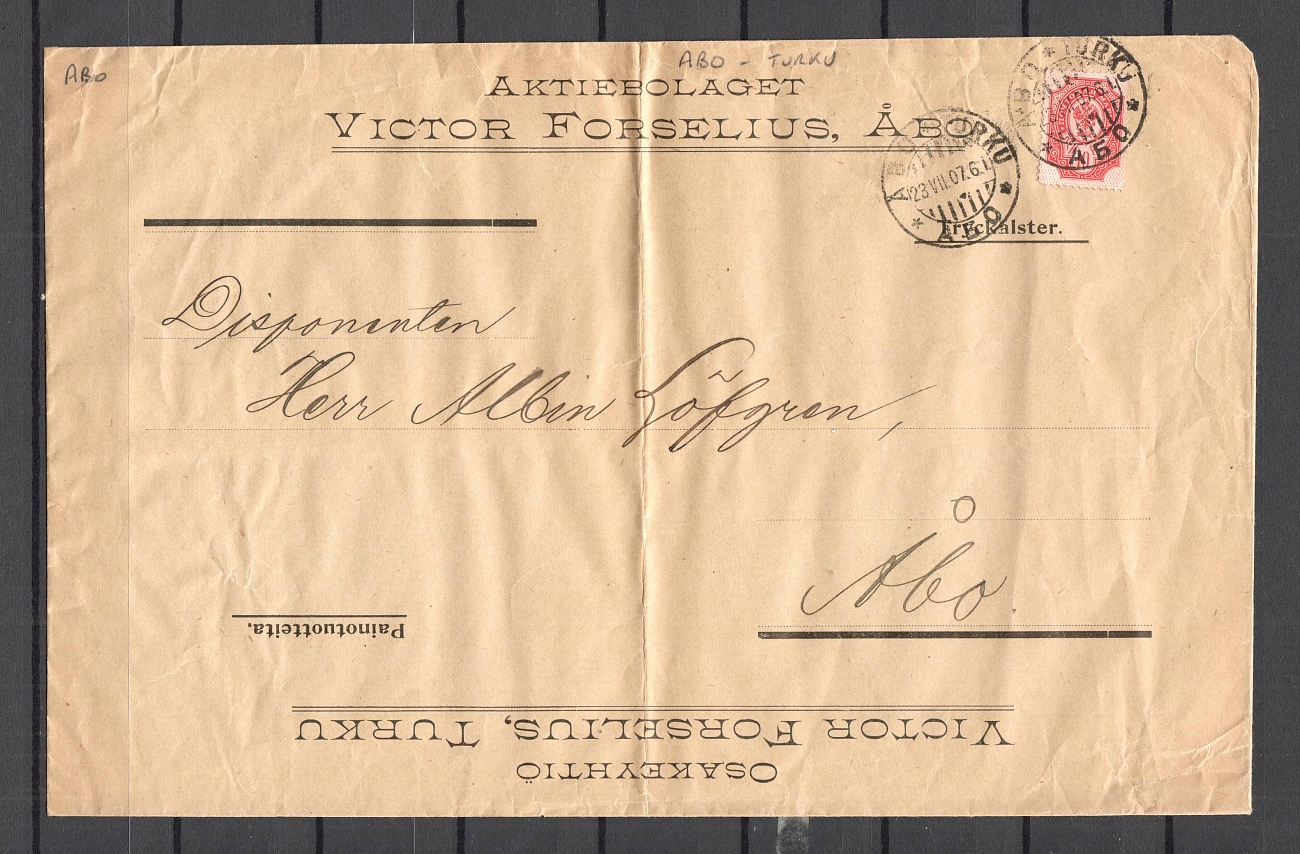 ABO
ABO - TURKU
AKTIEBOLAGET
VICTOR FORSELIUS, ÅBO
ÅBO * TURKU
* АБО *
ÅBO TURKU
23.VII.07.6.
* АБО *
Tryckalster.
Disponenten
Herr Albin Löfgren,
Åbo.
Painotuotteita.
VICTOR FORSELIUS, TURKU
OSAKEYHTIÖ